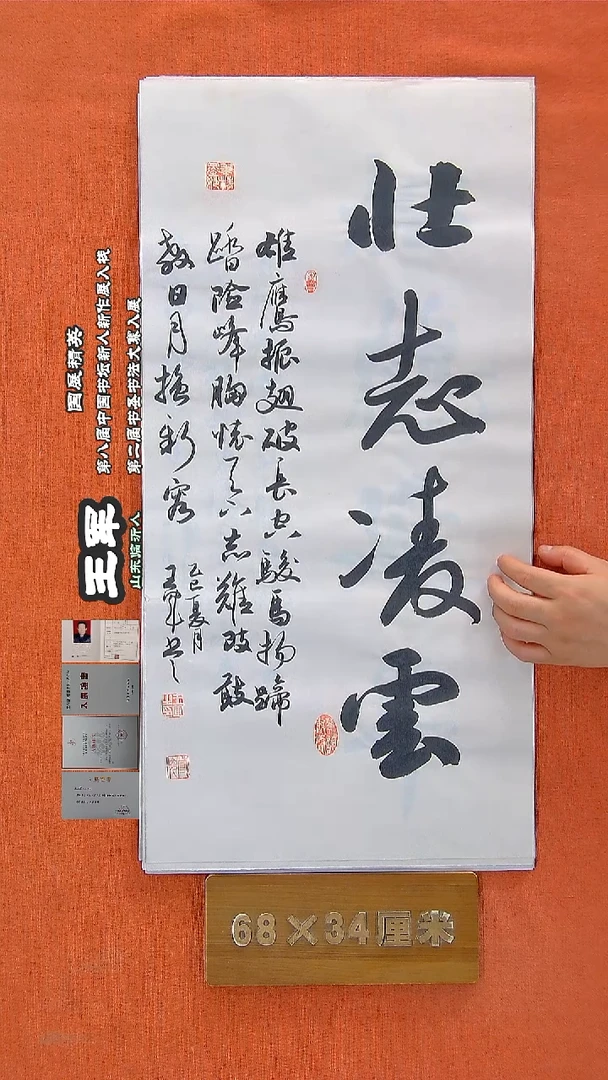 壮志凌雲
雄鹰振翅破长空骏马扬蹄
踏险峰胸怀天下志难改敢
教日月换新容
乙巳夏月
王军书之
国展精英
第八届中国书坛新人新作展入
第二届书圣书法大赛入展
王军
山东临沂人
68×34厘米